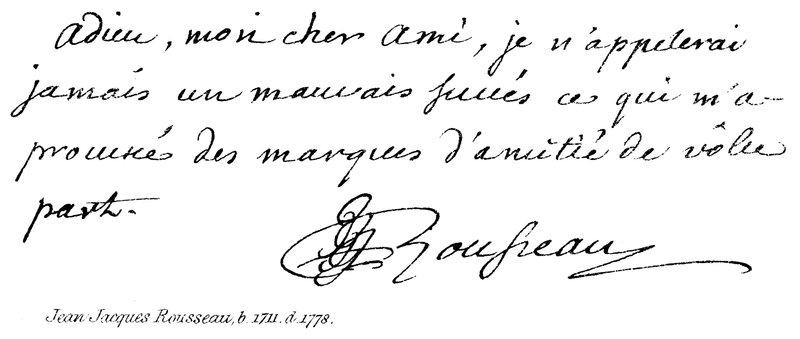 Adieu, mon cher Ami, je n'appelerai
jamais un mauvais succès ce qui m'a
procuré des marques d'amitié de vôtre
part.
JJRousseau
Jean Jacques Rousseau, b. 1711. d. 1778.